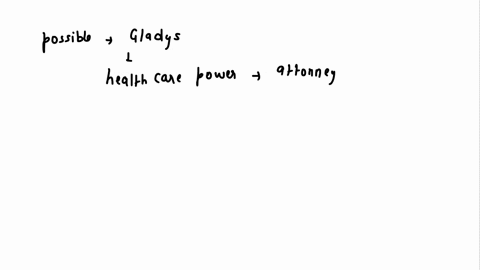 possible → Gladys
↓
health care power → attorney